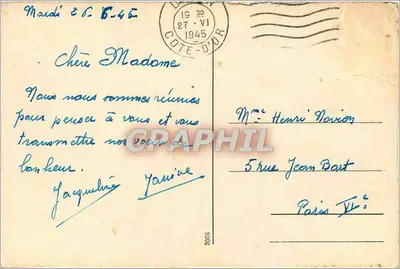 Mardi 26-6-45
19 30
27 · VI
1945
COTE-D'OR
Chère Madame
Nous nous sommes réunies
pour penser à vous et vous
transmettre nos voeux de
bonheur.
Jacqueline Janine
Mme Henri Navion
5 rue Jean Bart
Paris VIe
CARPHIL
9008